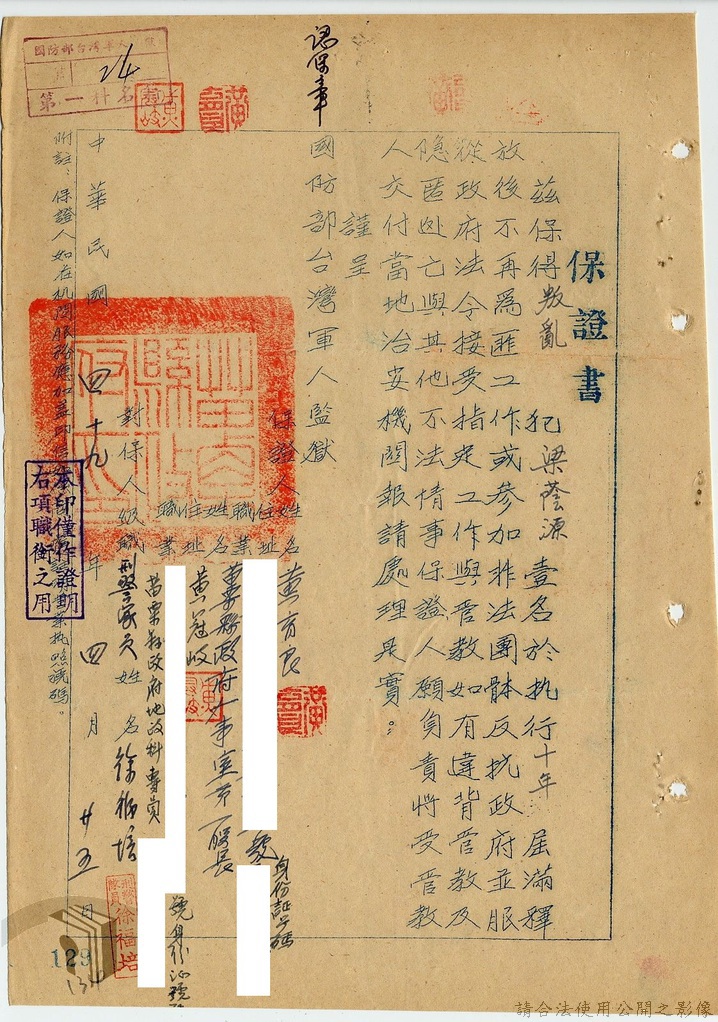 保證書
茲保得叛亂犯梁蔭源壹名於執行十年屆滿釋
放後不再為匪工作或參加非法團体反抗政府並服
從政府法令接受指定工作與管教如有違背管教及
隱匿逃亡與其他不法情事保證人願負責將受管教
人交付當地治安機關報請處理是實。
謹呈
國防部台灣軍人監獄
認保章
保證人姓名 黃育良
住址 號 身份証號碼
職業 苗栗縣政府人事室第一股長
姓名 黃冠岐
住址 號身份證號
職業 苗栗縣政府地政科專員
對保人級職 刑警隊員 姓名 徐福培
刑警隊員徐福培
中華民國四十九年四月廿五日
附註：保證人如在机關服務應加蓋印信
業執照號碼。
本印僅作證明
右項職銜之用
國防部台灣軍人監獄
第一科
24
129
130
請合法使用公開之影像